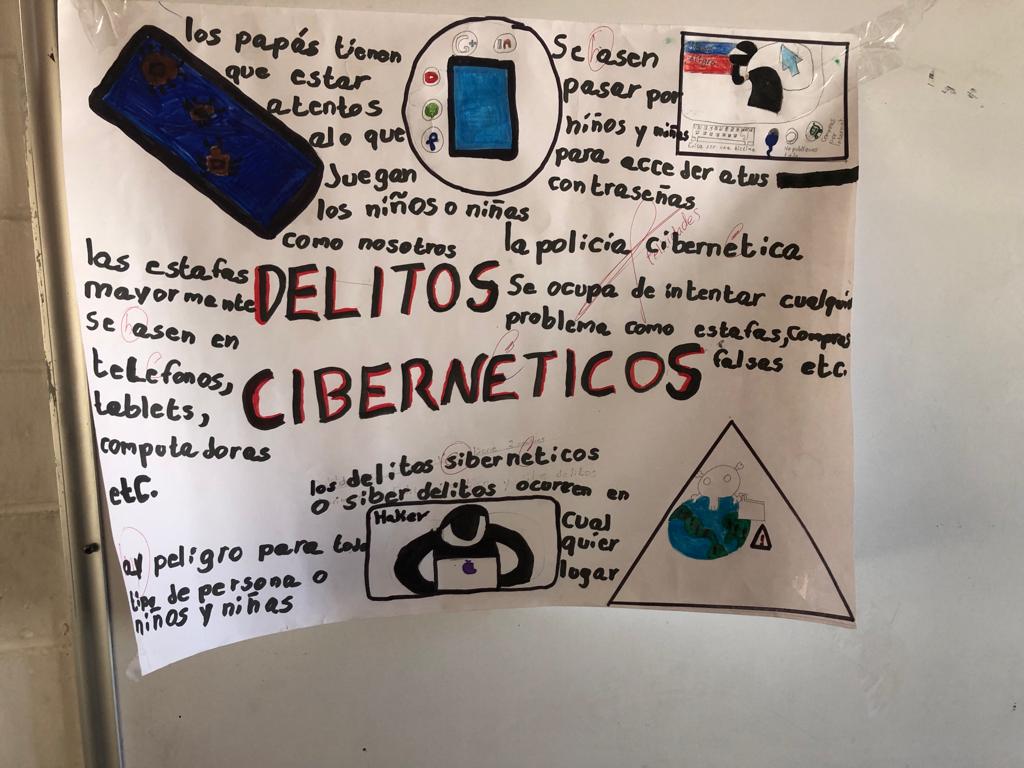 los papás tienen
que estar
atentos
alo que
Juegan
los niños o niñas
como nosotros
G+
in
Se hasen
pasar por
niños y niñas
para acceder atus
contraseñas
la policía cibernética
Se ocupa de intentar cualquier
problema como estafas, compras
falsas etc.
las estafas
mayormente
Se hasen en
teléfonos,
tablets,
computadoras
etc.
DELITOS
CIBERNÉTICOS
los delitos sibernéticos
o siber delitos ocurren en
cual
quier
lugar
Haker
hay peligro para todo
tipo de persona o
niños y niñas